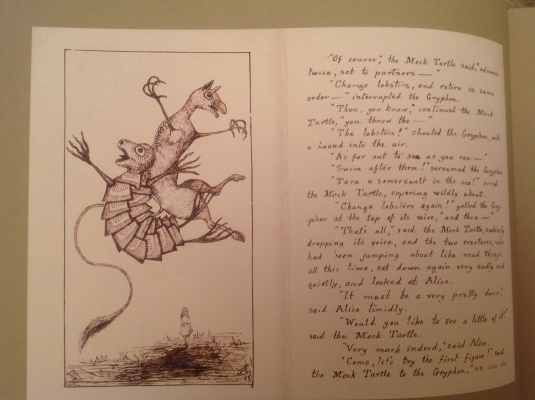 "Of course," the Mock Turtle said, "advance
twice, set to partners — "
"Change lobsters, and retire in same
order — " interrupted the Gryphon.
"Then, you know," continued the Mock
Turtle, "you throw the — "
"The lobsters!" shouted the Gryphon, with
a bound into the air.
"As far out to sea as you can — "
"Swim after them!" screamed the Gryphon
"Turn a somersault in the sea!" cried
the Mock Turtle, capering wildly about.
"Change lobsters again!" yelled the Gry-
phon at the top of its voice, "and then —
"That's all," said the Mock Turtle, suddenly
dropping its voice, and the two creatures, who
had been jumping about like mad things
all this time, sat down again very sadly and
quietly, and looked at Alice.
"It must be a very pretty dance,"
said Alice timidly.
"Would you like to see a little of it?"
said the Mock Turtle.
"Very much indeed," said Alice.
"Come, let's try the first figure!" said
the Mock Turtle to the Gryphon, "we can do